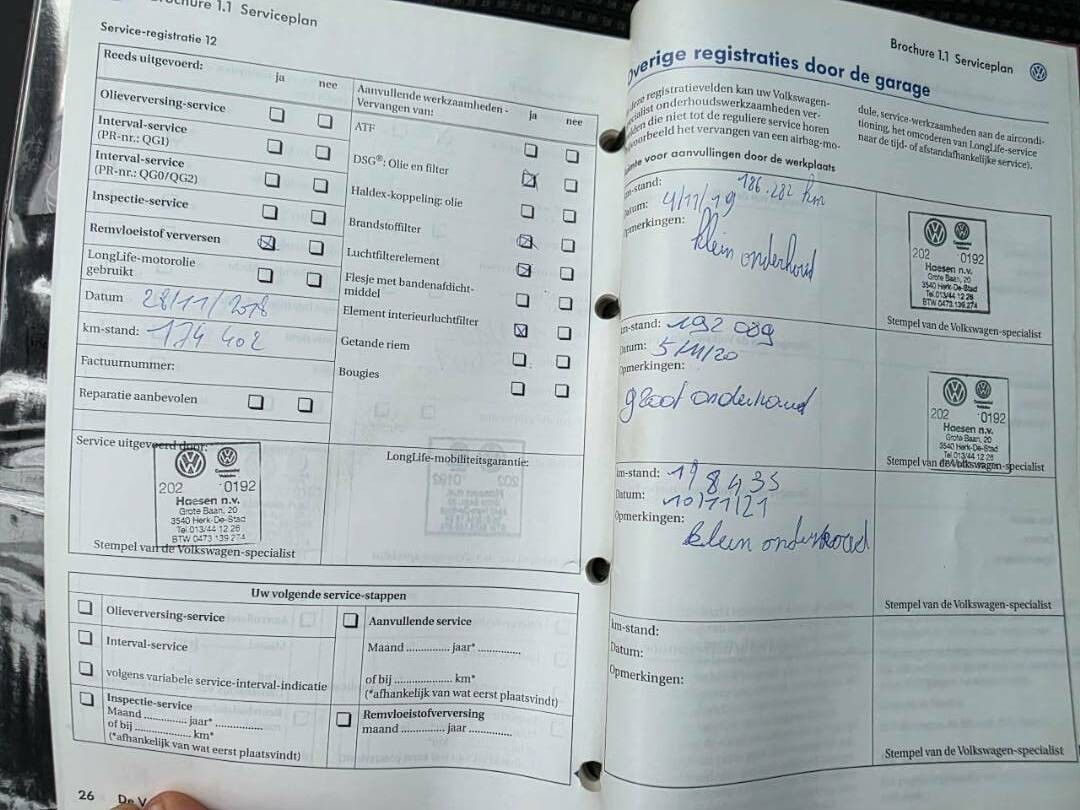 Brochure 1.1 Serviceplan
Service-registratie 12
Reeds uitgevoerd:
ja nee
Olieverversing-service
Interval-service
(PR-nr.: QG1)
Interval-service
(PR-nr.: QG0/QG2)
Inspectie-service
Remvloeistof verversen
LongLife-motorolie
gebruikt
Datum 28/11/2018
km-stand: 174 402
Factuurnummer:
Reparatie aanbevolen
Aanvullende werkzaamheden -
Vervangen van:
ja nee
ATF
DSG®: Olie en filter
Haldex-koppeling: olie
Brandstoffilter
Luchtfilterelement
Flesje met bandenafdicht-
middel
Element interieurluchtfilter
Getande riem
Bougies
Service uitgevoerd door:
202 0192
Haesen n.v.
Grote Baan, 20
3540 Herk-De-Stad
Tel.013/44 12 26
BTW 0473 139 274
Stempel van de Volkswagen-specialist
LongLife-mobiliteitsgarantie:
Uw volgende service-stappen
Olieverversing-service
Interval-service
volgens variabele service-interval-indicatie
Inspectie-service
Maand .............. jaar* .....................
of bij ....................... km*
(*afhankelijk van wat eerst plaatsvindt)
Aanvullende service
Maand .............. jaar* ..............
of bij .................... km*
(*afhankelijk van wat eerst plaatsvindt)
Remvloeistofverversing
maand .............. jaar ..............
26 De V
Brochure 1.1 Serviceplan
Overige registraties door de garage
deze registratievelden kan uw Volkswagen-
specialist onderhoudswerkzaamheden ver-
melden die niet tot de reguliere service horen
bijvoorbeeld het vervangen van een airbag-mo-
dule, service-werkzaamheden aan de aircondi-
tioning, het omcoderen van LongLife-service
naar de tijd- of afstandafhankelijke service).
Ruimte voor aanvullingen door de werkplaats
km-stand: 186.282 km
Datum: 4/11/19
Opmerkingen:
klein onderhoud
202 0192
Haesen n.v.
Grote Baan, 20
3540 Herk-De-Stad
Tel.013/44 12 26
BTW 0473.139.274
Stempel van de Volkswagen-specialist
km-stand: 192 089
Datum: 5/11/20
Opmerkingen:
groot onderhoud
202 0192
Haesen n.v.
Grote Baan, 20
3540 Herk-De-Stad
Tel.013/44 12 26
Stempel van de Volkswagen-specialist
km-stand: 198435
Datum: 10/11/21
Opmerkingen:
klein onderhoud
Stempel van de Volkswagen-specialist
km-stand:
Datum:
Opmerkingen:
Stempel van de Volkswagen-specialist